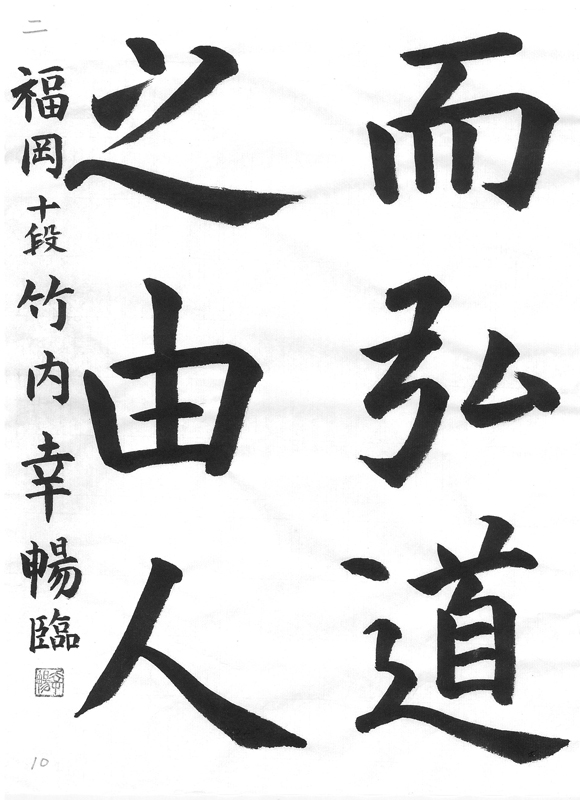 而弘道
之由人
二
福岡十段竹内幸暢臨
10